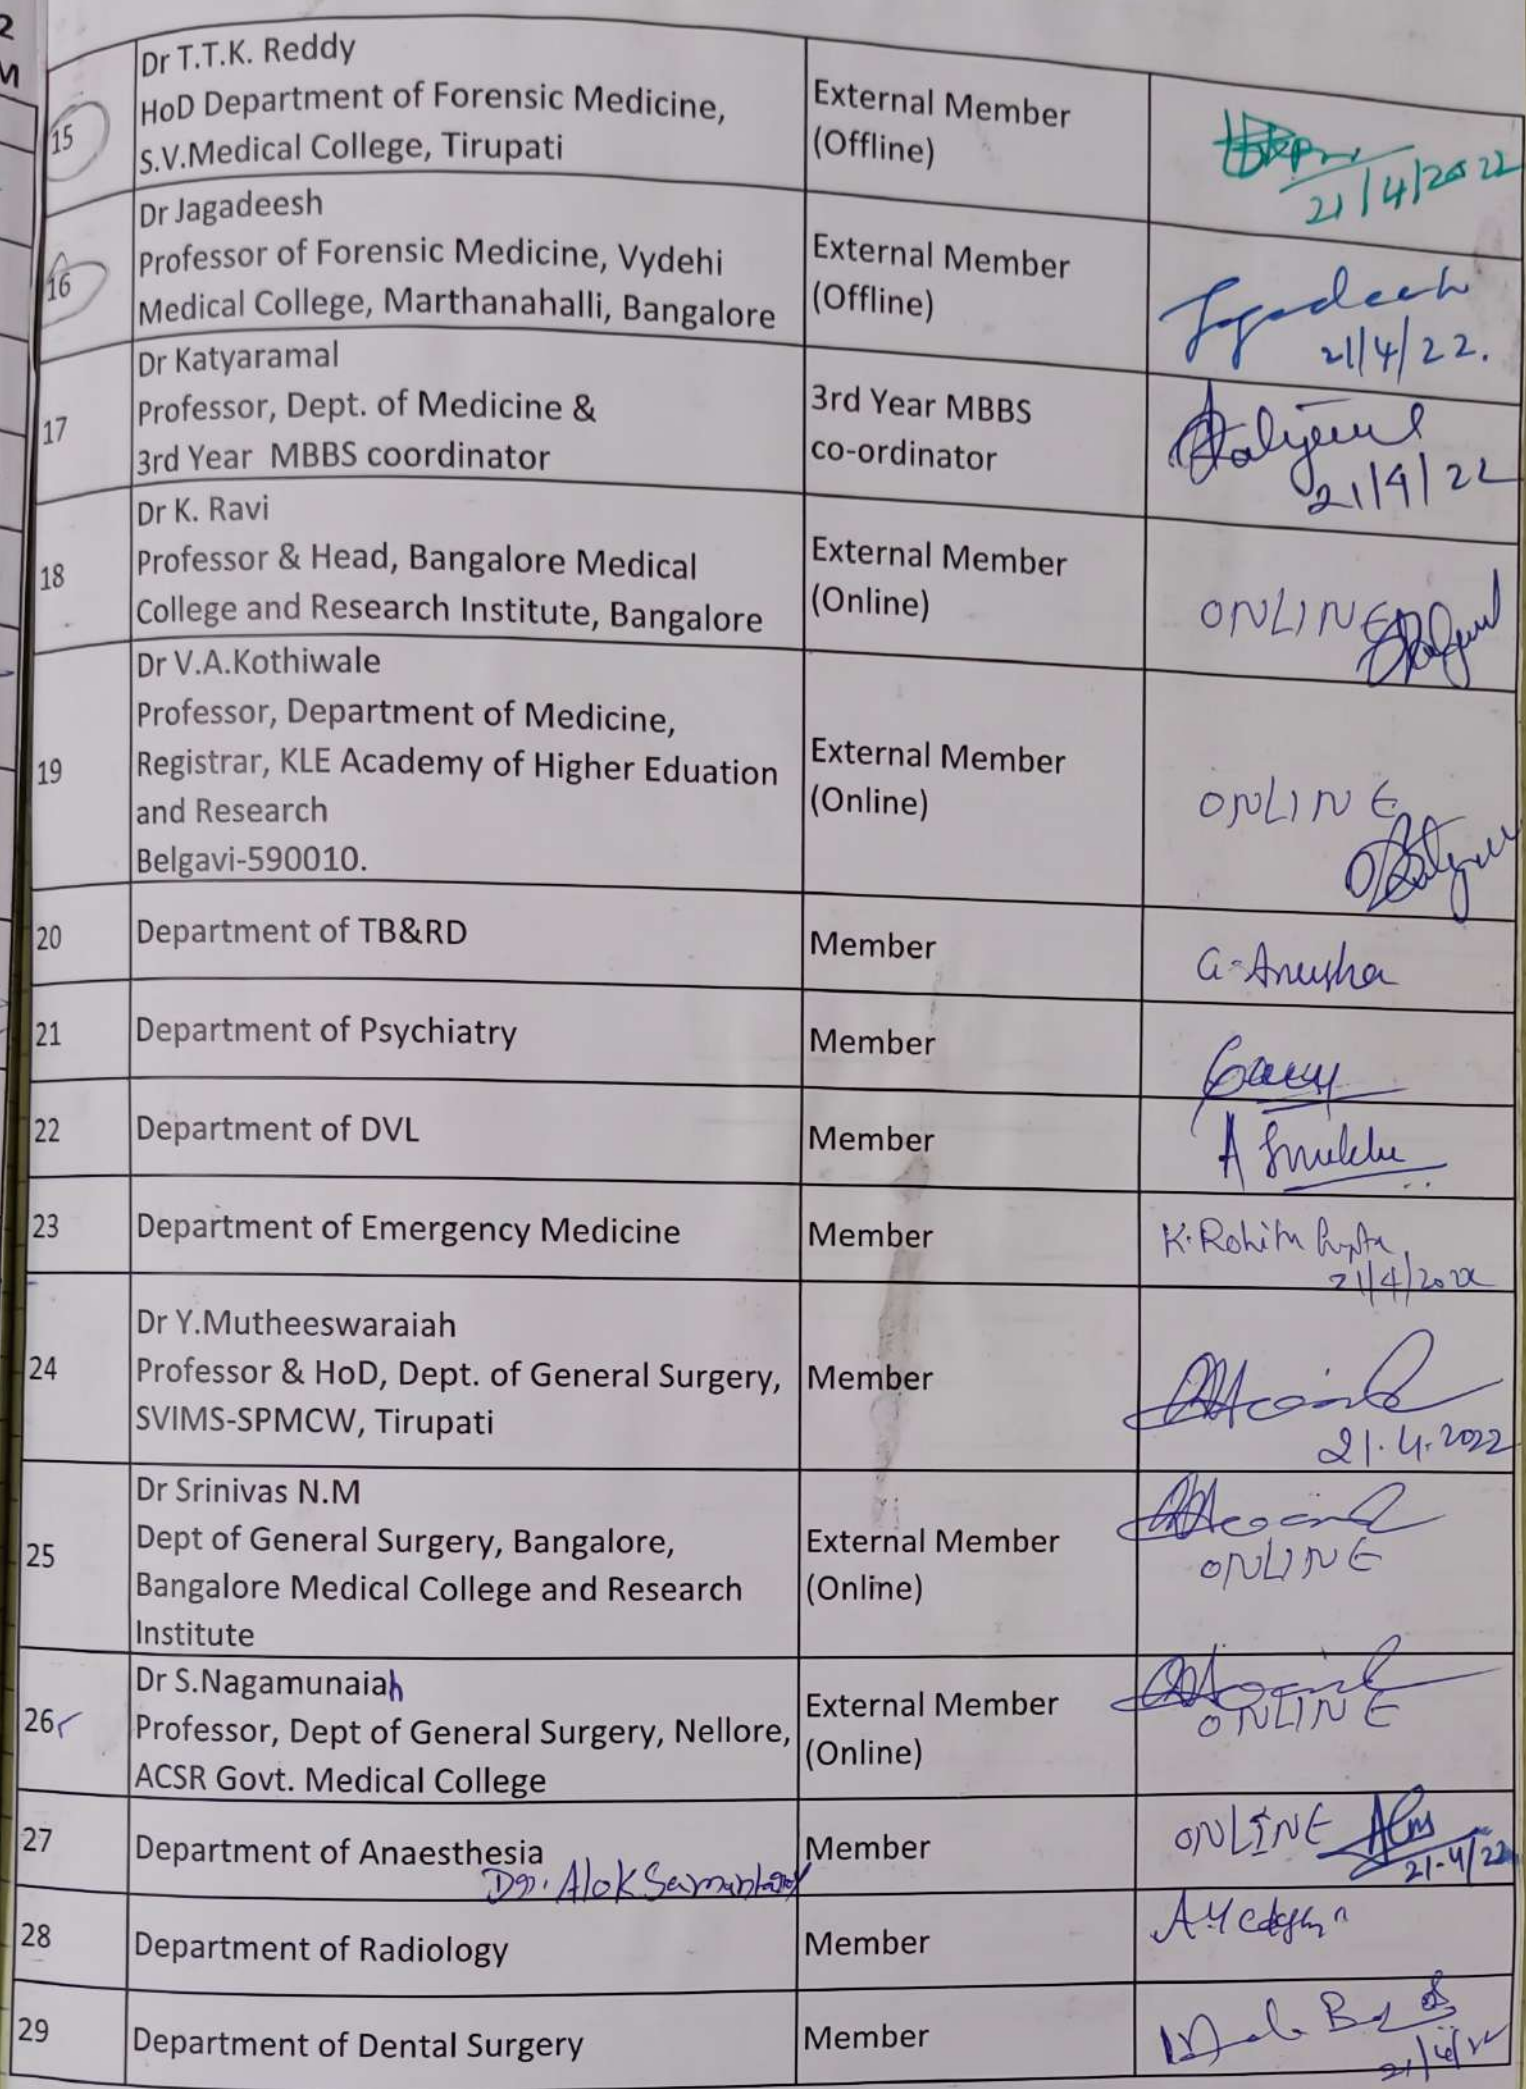 2
M
15
Dr T.T.K. Reddy
HoD Department of Forensic Medicine,
S.V.Medical College, Tirupati
External Member
(Offline)
21/4/2022
16
Dr Jagadeesh
Professor of Forensic Medicine, Vydehi
Medical College, Marthanahalli, Bangalore
External Member
(Offline)
Jagadeesh
21/4/22.
17
Dr Katyaramal
Professor, Dept. of Medicine &
3rd Year MBBS coordinator
3rd Year MBBS
co-ordinator
21/4/22
18
Dr K. Ravi
Professor & Head, Bangalore Medical
College and Research Institute, Bangalore
External Member
(Online)
ONLINE
19
Dr V.A.Kothiwale
Professor, Department of Medicine,
Registrar, KLE Academy of Higher Eduation
and Research
Belgavi-590010.
External Member
(Online)
ONLINE
20
Department of TB&RD
Member
G. Anusha
21
Department of Psychiatry
Member
22
Department of DVL
Member
23
Department of Emergency Medicine
Member
K. Rohith Gupta
21/4/2022
24
Dr Y.Mutheeswaraiah
Professor & HoD, Dept. of General Surgery,
SVIMS-SPMCW, Tirupati
Member
21.4.2022
25
Dr Srinivas N.M
Dept of General Surgery, Bangalore,
Bangalore Medical College and Research
Institute
External Member
(Online)
ONLINE
26
Dr S.Nagamunaiah
Professor, Dept of General Surgery, Nellore,
ACSR Govt. Medical College
External Member
(Online)
ONLINE
27
Department of Anaesthesia
Dr. Alok Samantaray
Member
ONLINE
21-4/22
28
Department of Radiology
Member
29
Department of Dental Surgery
Member
21/4/22